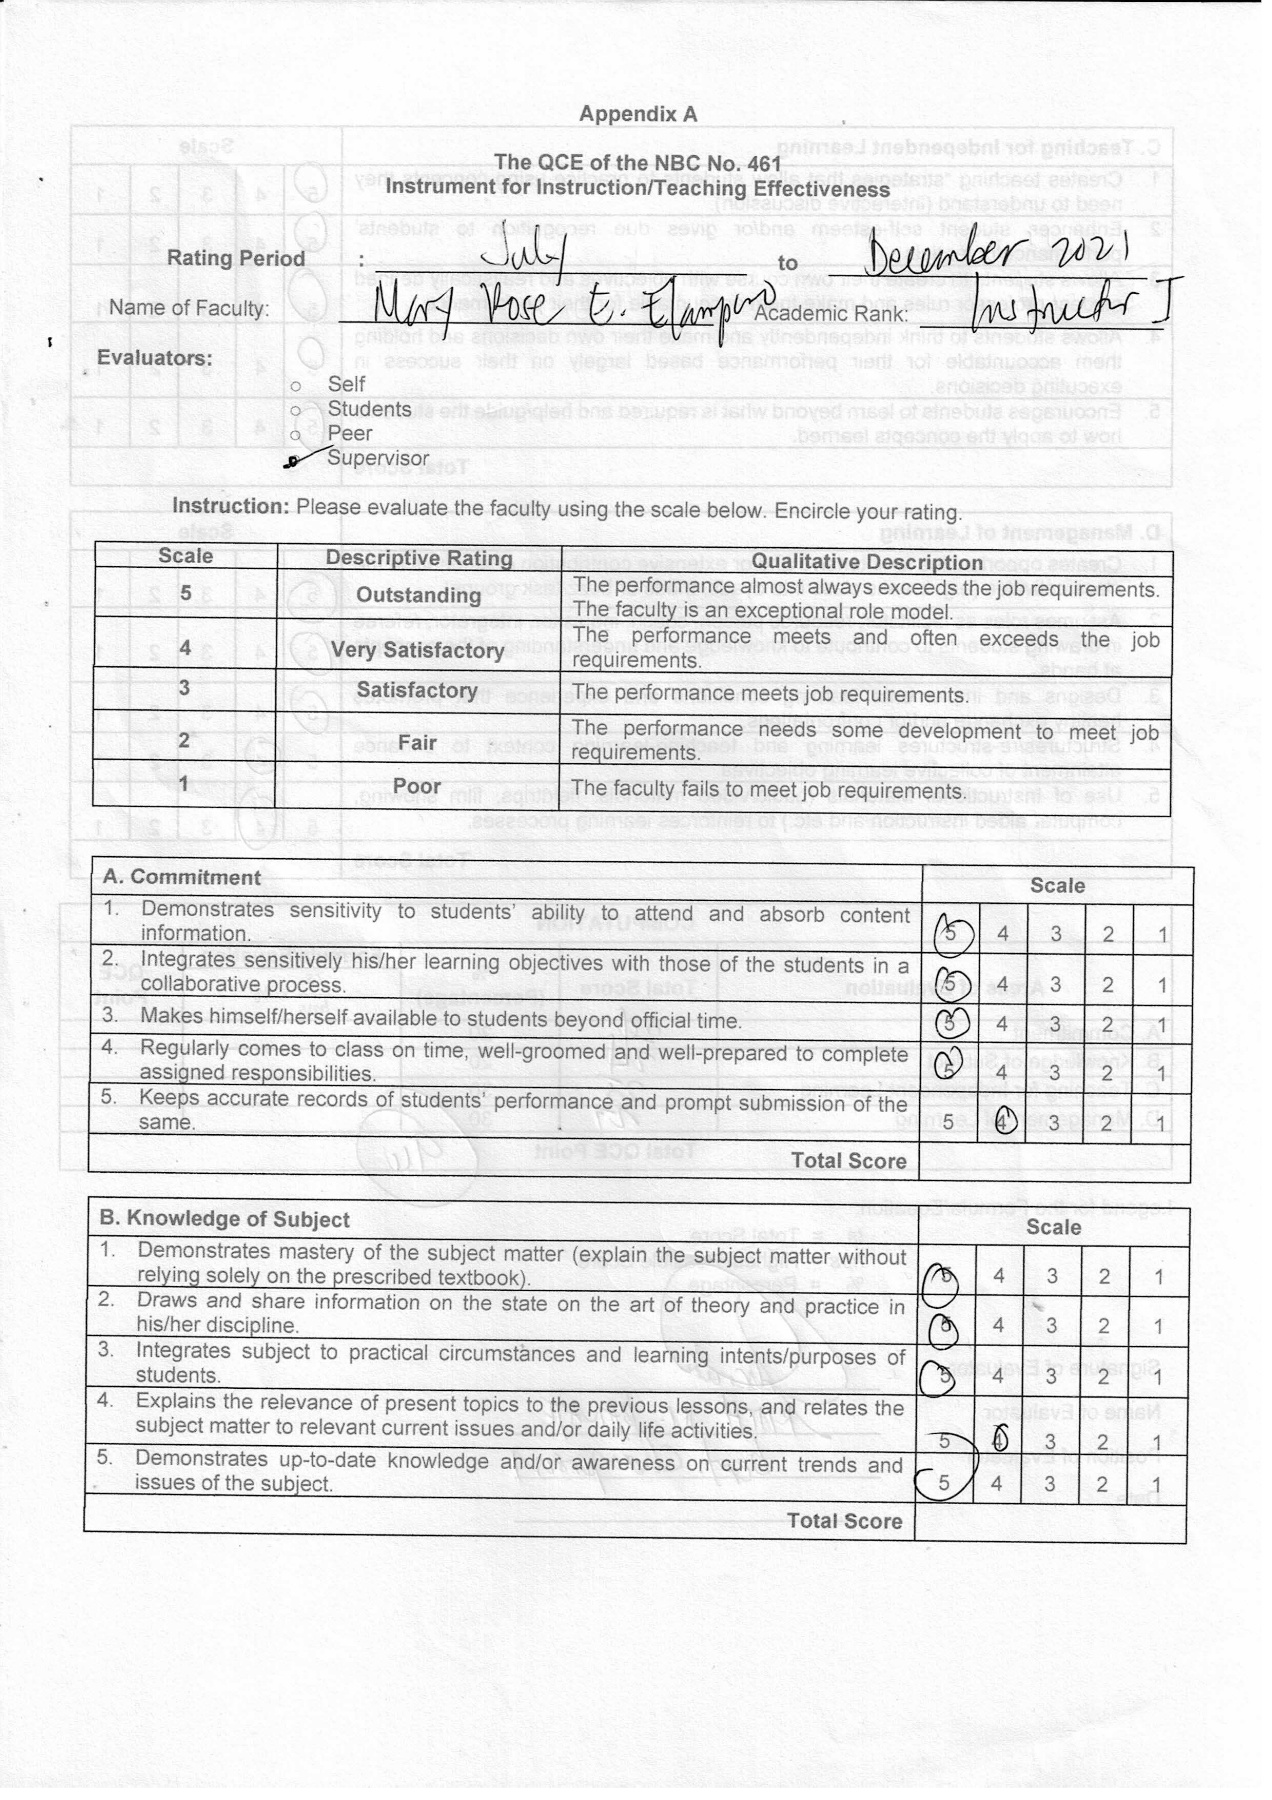 Appendix A
The QCE of the NBC No. 461
Instrument for Instruction/Teaching Effectiveness
Rating Period : July to December 2021
Name of Faculty: Mary Rose E. Academic Rank: Instructor I
Evaluators:
○ Self
○ Students
○ Peer
Supervisor
Instruction: Please evaluate the faculty using the scale below. Encircle your rating.
Scale Descriptive Rating Qualitative Description
5 Outstanding The performance almost always exceeds the job requirements.
The faculty is an exceptional role model.
4 Very Satisfactory The performance meets and often exceeds the job
requirements.
3 Satisfactory The performance meets job requirements.
2 Fair The performance needs some development to meet job
requirements.
1 Poor The faculty fails to meet job requirements.
A. Commitment Scale
1. Demonstrates sensitivity to students' ability to attend and absorb content
information. 5 4 3 2 1
2. Integrates sensitively his/her learning objectives with those of the students in a
collaborative process. 5 4 3 2 1
3. Makes himself/herself available to students beyond official time. 5 4 3 2 1
4. Regularly comes to class on time, well-groomed and well-prepared to complete
assigned responsibilities. 5 4 3 2 1
5. Keeps accurate records of students' performance and prompt submission of the
same. 5 4 3 2 1
Total Score
B. Knowledge of Subject Scale
1. Demonstrates mastery of the subject matter (explain the subject matter without
relying solely on the prescribed textbook). 5 4 3 2 1
2. Draws and share information on the state on the art of theory and practice in
his/her discipline. 5 4 3 2 1
3. Integrates subject to practical circumstances and learning intents/purposes of
students. 5 4 3 2 1
4. Explains the relevance of present topics to the previous lessons, and relates the
subject matter to relevant current issues and/or daily life activities. 5 4 3 2 1
5. Demonstrates up-to-date knowledge and/or awareness on current trends and
issues of the subject. 5 4 3 2 1
Total Score